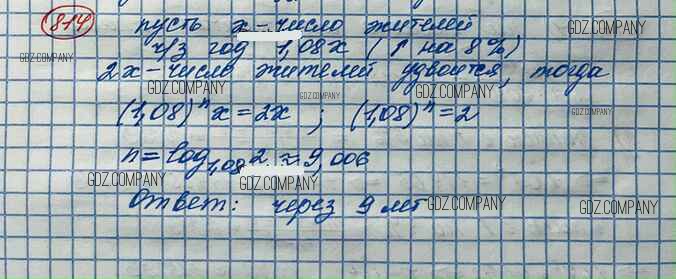 814 пусть x - число жителей
ч/з год 1,08x (↑ на 8%)
2x - число жителей удвоится, тогда
(1,08)ⁿx = 2x ; (1,08)ⁿ = 2
n = log₁,₀₈2 ≈ 9,006
Ответ: через 9 лет
GDZ.COMPANY
GDZ.COMPANY
GDZ.COMPANY
GDZ.COMPANY
GDZ.COMPANY
GDZ.COMPANY
GDZ.COMPANY
GDZ.COMPANY
GDZ.COMPANY
GDZ.COMPANY
GDZ.COMPANY